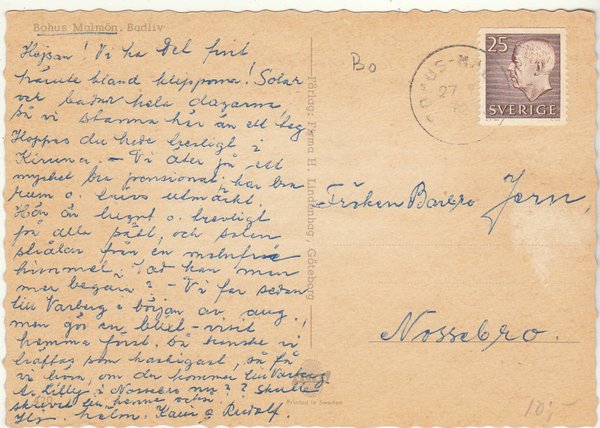 Bohus Malmön. Badliv
Hejsan! Vi ha det fint
härute bland klipporna! Solar
och badar hela dagarna
så vi stanna här än ett tag
Hoppas du hade trevligt i
Kiruna. - Vi äter på ett
mycket bra pensionat, har bra
rum o. trivs utmärkt.
Här är lugnt o. trevligt
på alla sätt, och solen
strålar från en molnfri
himmel. Vad kan man
mer begära? - Vi far sedan
till Varberg i början av aug.
men gör en blixt-visit
hemma först. Då kanske vi
träffas som hastigast, så få
vi höra, om du kommer till Varberg
Är Lilly i Nossebro nu? Skulle
skrivit till henne också.
Hj. häln. Karin o Rudolf.
Förlag: Firma H. Lindenhag, Göteborg
Printed in Sweden
Bo
BOHUS-MA
27
25
SVERIGE
Fröken Barbro Jern,
Nossebro.
10;-